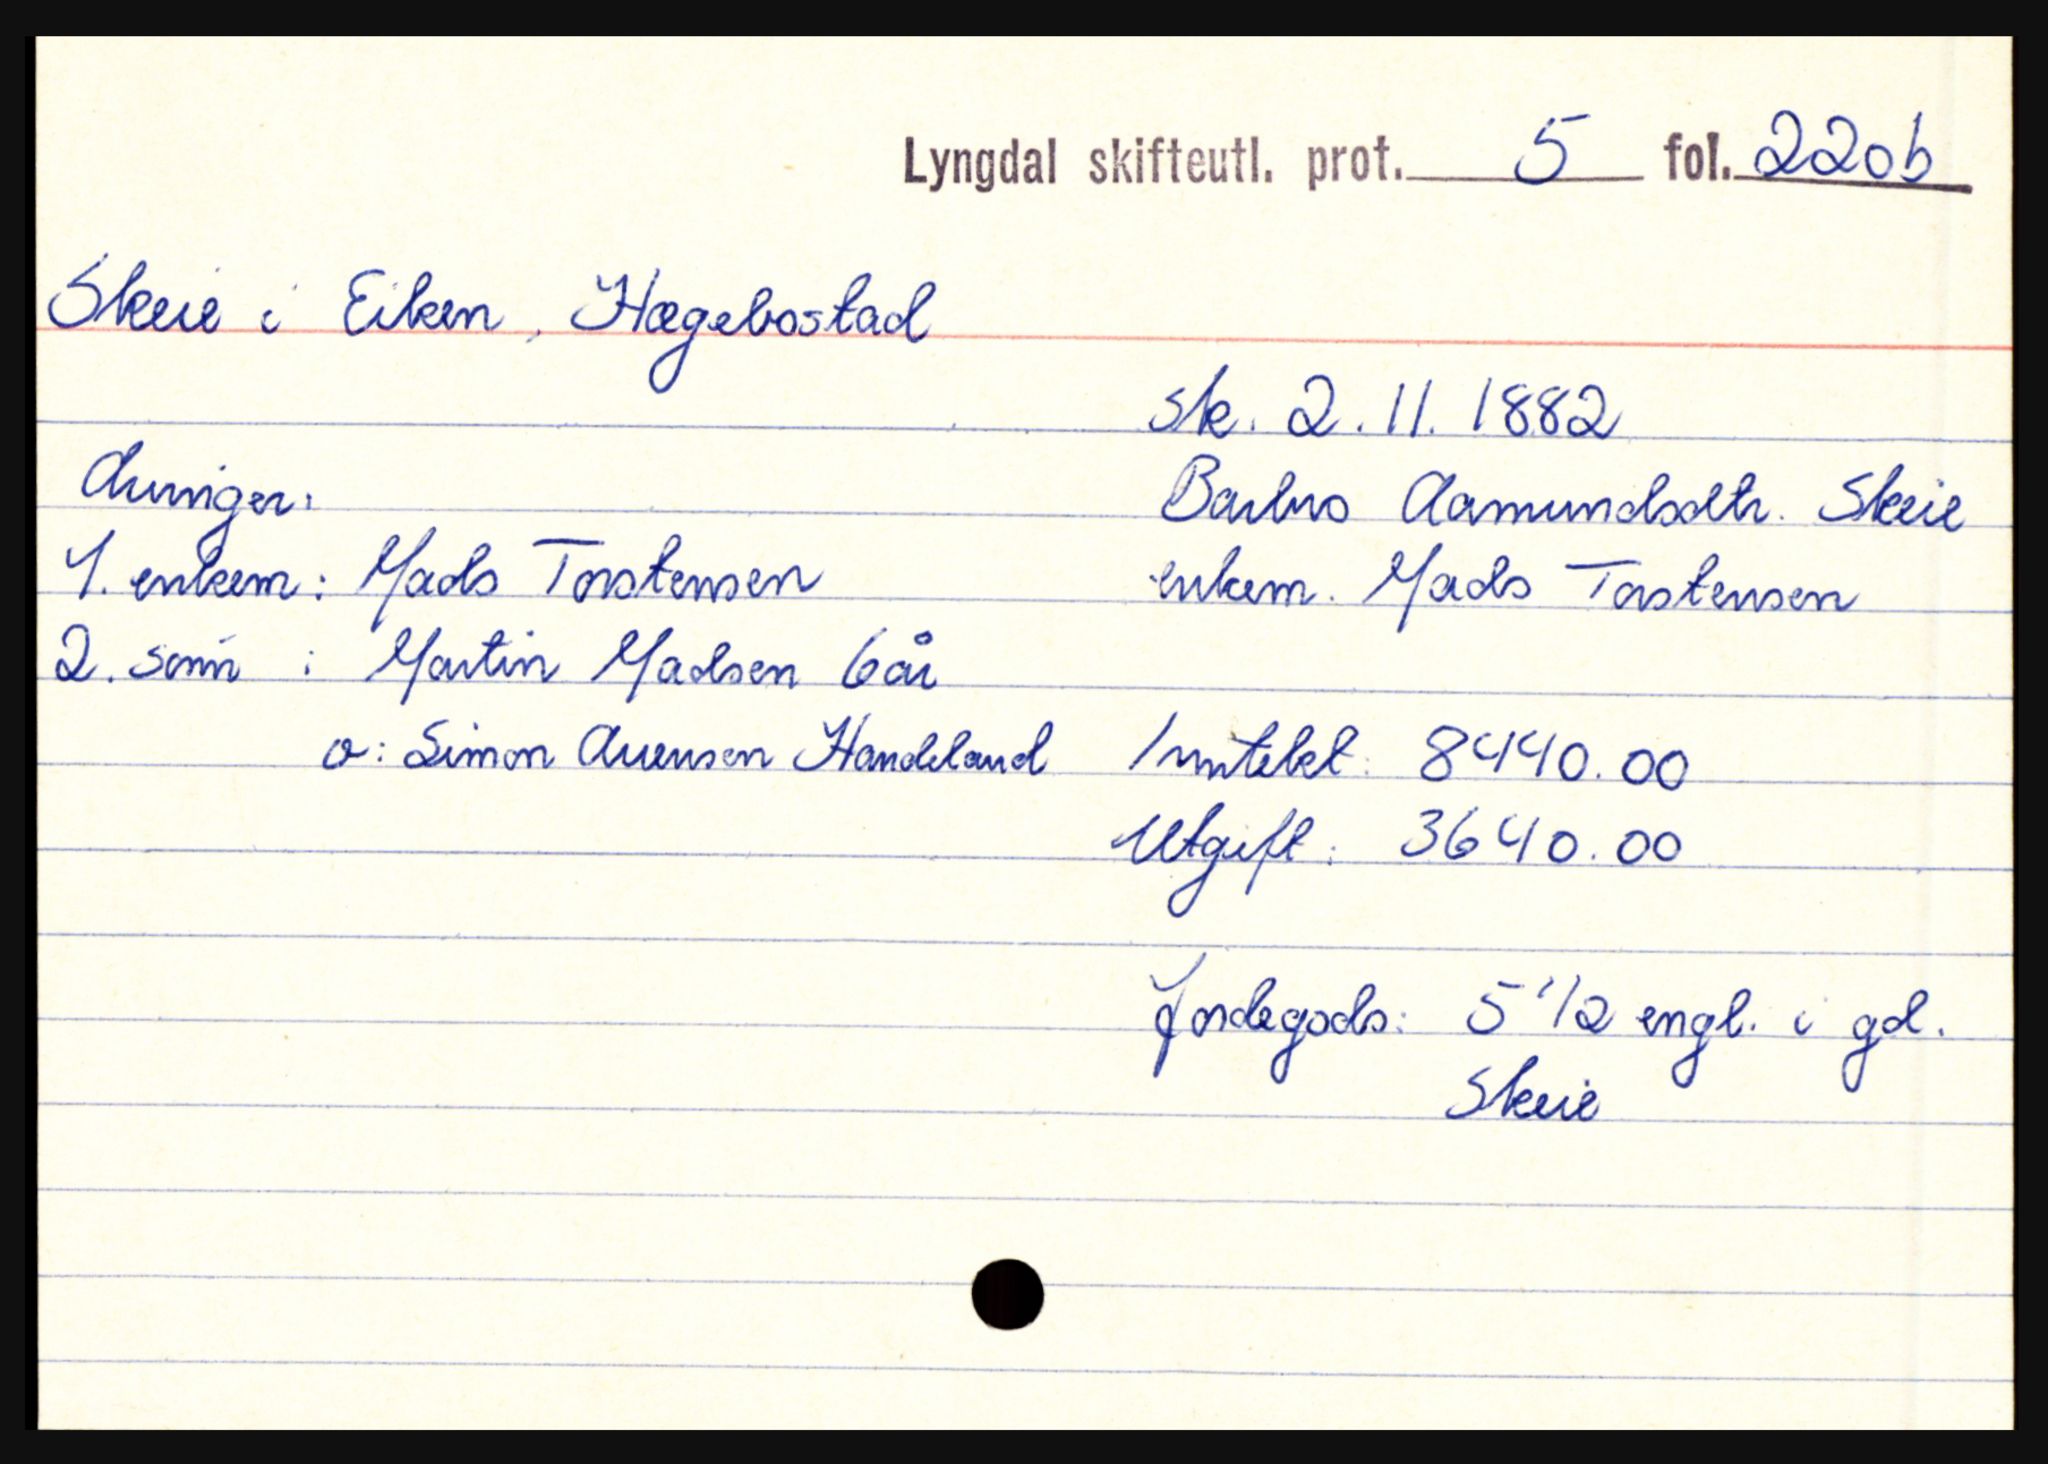 Lyngdal skifteutl. prot. 5 fol. 220b
Skeie i Eiken, Hægebostad
sk. 2.11.1882
Arvinger:
Barbro Aamundsdtr. Skeie
1. enkem: Mads Torstensen
enkem. Mads Torstensen
2. sønn : Martin Madsen 6 år
v: Simon Arensen Handeland
Inntekt: 8440.00
Utgift: 3640.00
Jordegods: 5 1/2 engl. i gd.
Skeie